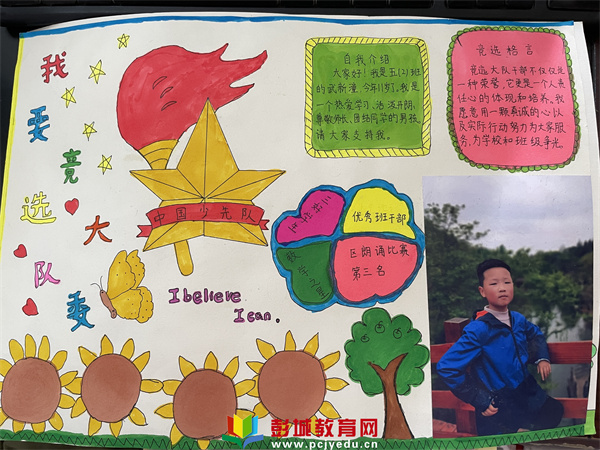 我要竞选大队委
中国少先队
I believe
I can.
自我介绍
大家好！我是五(2)班
的武新潼，今年11岁。我是
一个热爱学习、活泼开朗、
尊敬师长、团结同学的男孩，
请大家支持我。
竞选格言
竞选大队干部不仅仅是
一种荣誉，它更是一个人责
任心的体现和培养。我
愿意用一颗真诚的心以
及实际行动努力为大家服
务，为学校和班级争光。
三好学生
优秀班干部
数学之星
区朗诵比赛
第三名
彭城教育网
www.pcjyedu.cn